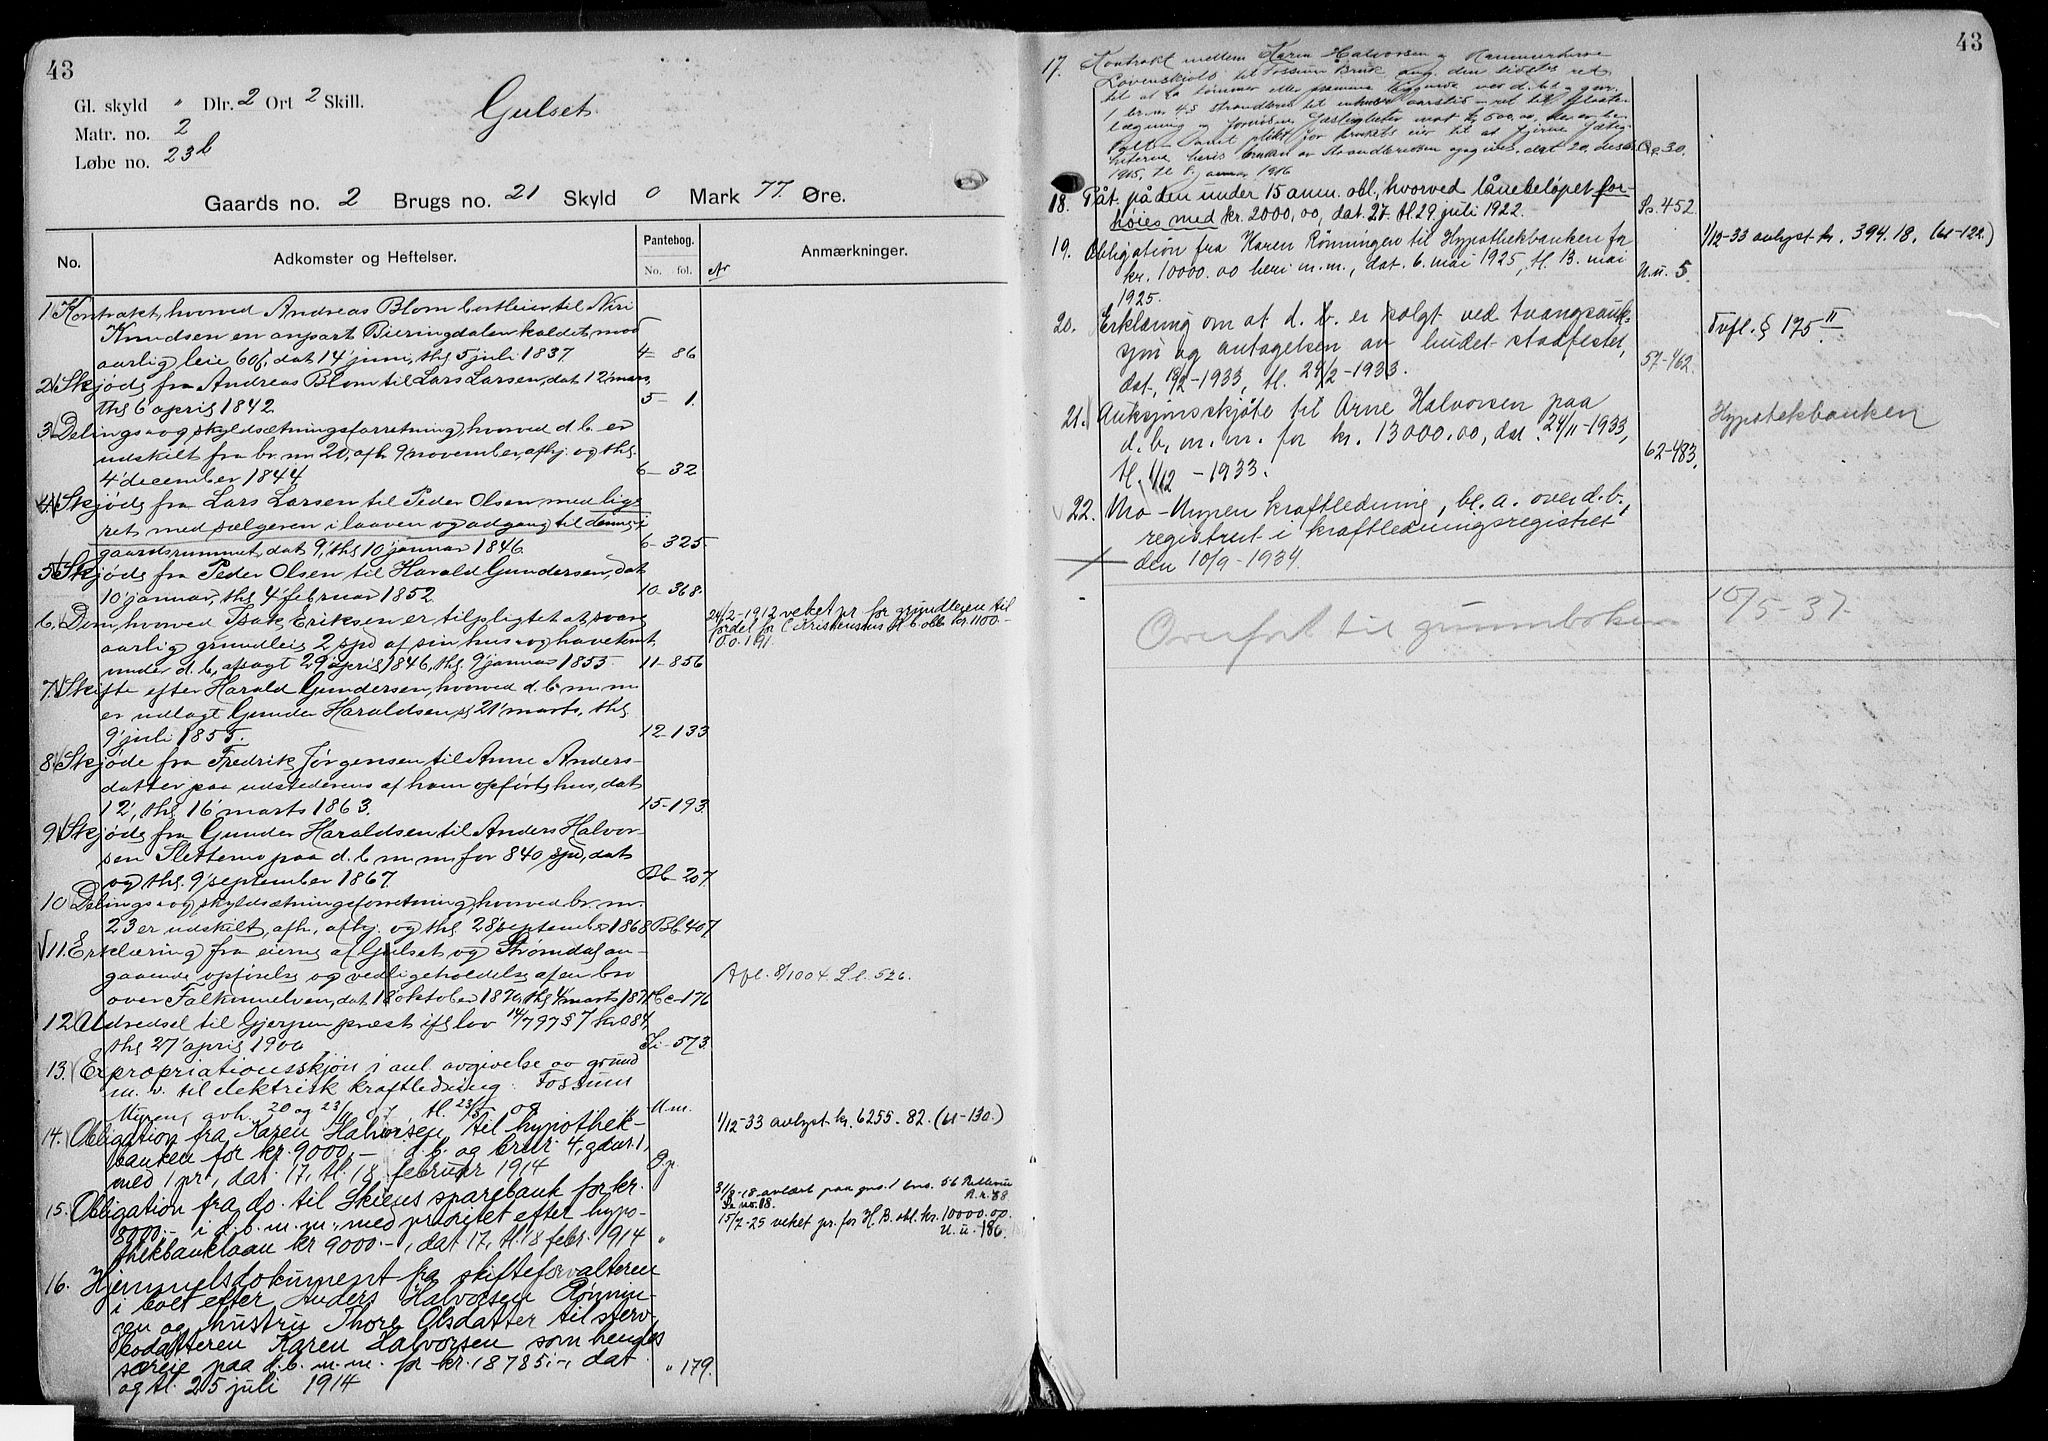 43
Gl. skyld " Dlr. 2 Ort 2 Skill.
Matr. no. 2
Løbe no. 23b
Gulset.
Gaards no. 2 Brugs no. 21 Skyld 0 Mark 77 Øre.
No. Adkomster og Heftelser. Pantebog. No. fol. Anmærkninger.
1 Kontrakt, hvorved Andreas Blom bortleier til
Knudsen en anpart Bieringdalen kaldet mod
aarlig leie dat 14 juni, thl 5 juli 1837 4- 86
2 Skjøde fra Andreas Blom til Lars Larsen, dat 12 mars,
thl 6 april 1842. 5- 1.
3. Delings- og skyldsætningsforretning, hvorved d. b. er
udskilt fra br. nr 20, afh 9 november, afhj. og thl.
4 december 1844 6- 32
4 Skjøde fra Lars Larsen til Peder Olsen med lige
ret med sælgeren i laaven og adgang til denne i
gaardsrummet, dat 9, thl 10 januar 1846. 6- 325.
5 Skjøde fra Peder Olsen til Harald Gundersen, dat
10 januar, thl 4 februar 1852. 10-368.
6. Dom, hvorved Isak Eriksen er tilpligtet at svare
aarlig grundleie 2 spd af sin hus- og havetomt
under d. b., afsagt 29 april 1846, thl. 9 januar 1855 11-856
24/2-1912 veket pr. for grundleien til
fordel for obl. kr. 1100
7. Skifte efter Harald Gundersen, hvorved d. b. m. m
er udlagt Gunder Haraldsen, 21 marts, thl
9 juli 1855. 12-133
8. Skjøde fra Fredrik Jørgensen til Anne Anders-
datter paa udstederens af ham opførte hus, dat
12, thl 16 marts 1863. 15-193.
9. Skjøde fra Gunder Haraldsen til Anders Halvor-
sen Slettemo paa d. b. m. m. for 840 spd, dat
og thl. 9 september 1867. Bb 207
10 Delings- og skyldsætningsforretning, hvorved br. nr.
23 er udskilt, afh., afhj. og thl 28 september 1868 Bb. 407
11. Erklæring fra eierne af Gulset og Strømdal an-
gaaende opførelse og vedligeholdelse af en bro
over Falkumelven, dat 18 oktober 1870, thl 4 marts 1871 Cc-176
Afl. 8/1004 L l. 526.
12 Udredsel til Gjerpen præst ifl lov 14/7 97 § 7 kr 0 84,
thl 27 april 1900 573.
13. Expropriationsskjøn i anl avgivelse av grund
m. v. til elektrisk kraftledning Fossum
Myren, avh. 20 og 23/4 07, tl. 23/5 07 U. m.
14. Obligation fra Karen Halvorsen til hypothek-
banken for kr. 9000.- i d. b. og brnr. 4, gaar. 1,
med 1 pr., dat. 17, tl. 18 februar 1914 G. p.
1/12-33 avlyst kr. 6255.82. (61-130.)
15. Obligation fra do. til Skiens sparebank for kr.
8000.- i d. b. m. m., med prioritet efter hypo-
thekbanklaan kr 9000.-, dat 17, tl. 18 febr. 1914 "
31/8-18 avlæst paa gno. 1 bno. 56
15/7-25 veket pr. for H. B. obl. kr. 10000.00.
U. u. 186.
16. Hjemmelsdokument fra skifteforvalteren
i boet efter Anders Halvorsen Rønnin-
gen og hustru Thore Olsdatter til sterv-
bodatteren Karen Halvorsen som hendes
særeie paa d. b. m. m. for kr. 18785.-, dat
og tl. 25 juli 1914 " 179.
43
17. Kontrakt mellem Karen Halvorsen og Kammerherre
Løvenskiold til Fossum Bruk ang. den sidstes ret
til at
1915, tl 8 januar 1916 Qq. 30.
18. Påt. på den under 15 anm. obl., hvorved lånebeløpet for-
høies med kr. 2000,00, dat. 27. tl. 29 juli 1922. 452.
19. Obligation fra Karen Rønningen til Hypothekbanken for
kr. 10000.00 heri m.m., dat. 6. mai 1925, tl. 13. mai
1925. U. u. 5.
1/12-33 avlyst kr. 394.18. (61-122.)
20. Erklæring om at d. b. er solgt ved tvangsauk-
sjon og antagelsen av budet stadfestet,
dat. 18/2-1933, tl. 24/2-1933. 57-462.
Tvfl. § 175 II
21. Auksjonsskjøte til Arne Halvorsen paa
d. b. m. m. for kr. 13000.00, dat. 24/11-1933,
tl. 1/12 - 1933. 62-483.
Hypotekbanken
22. kraftledning, bl. a. over d. b.,
registrert i kraftledningsregistret
den 10/9-1934.
Overført til grunnboken 10/5-37.